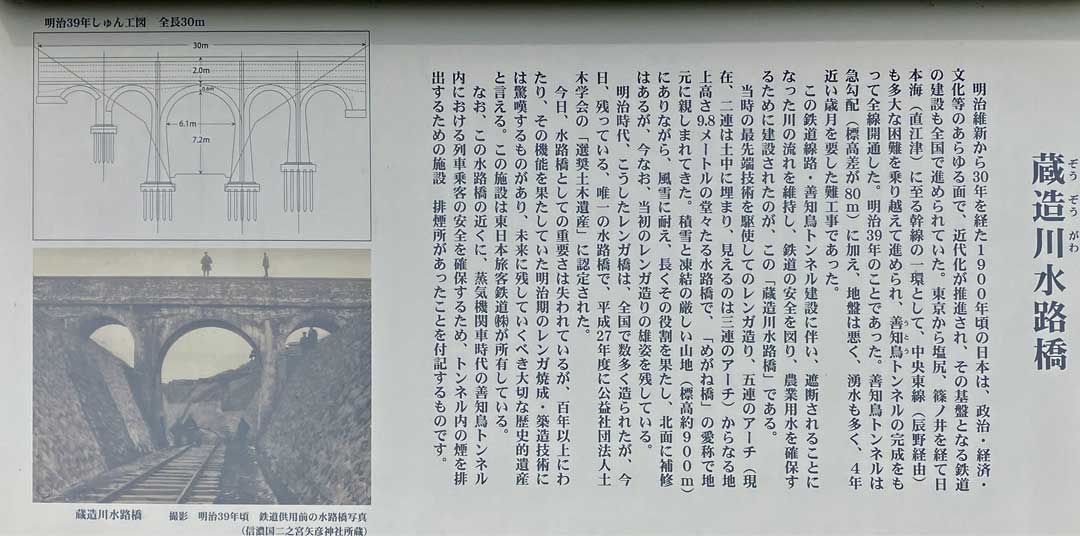 蔵造川水路橋
ぞうぞうがわ
明治維新から30年を経た1900年頃の日本は、政治・経済・
文化等のあらゆる面で、近代化が推進され、その基盤となる鉄道
の建設も全国で進められていた。東京から塩尻、篠ノ井を経て日
本海（直江津）に至る幹線の一環として、中央東線（辰野経由）
も多大な困難を乗り越えて進められ、善知鳥トンネルの完成をも
うとう
って全線開通した。明治39年のことであった。善知鳥トンネルは
急勾配（標高差が80m）に加え、地盤は悪く、湧水も多く、4年
近い歳月を要した難工事であった。
この鉄道線路・善知鳥トンネル建設に伴い、遮断されることに
なった川の流れを維持し、鉄道の安全を図り、農業用水を確保す
るために建設されたのが、この「蔵造川水路橋」である。
当時の最先端技術を駆使してのレンガ造り、五連のアーチ（現
在、二連は土中に埋まり、見えるのは三連のアーチ）からなる地
上高さ9.8メートルの堂々たる水路橋で、「めがね橋」の愛称で地
元に親しまれてきた。積雪と凍結の厳しい山地（標高約900m）
にありながら、風雪に耐え、長くその役割を果たし、北面に補修
はあるが、今なお、当初のレンガ造りの雄姿を残している。
明治時代、こうしたレンガ橋は、全国で数多く造られたが、今
日、残っている、唯一の水路橋で、平成27年度に公益社団法人土
木学会の「選奨土木遺産」に認定された。
今日、水路橋としての重要さは失われているが、百年以上にわ
たり、その機能を果たしていた明治期のレンガ焼成・築造技術に
は驚嘆するものがあり、未来に残していくべき大切な歴史的遺産
と言える。この施設は東日本旅客鉄道㈱が所有している。
なお、この水路橋の近くに、蒸気機関車時代の善知鳥トンネル
内における列車乗客の安全を確保するため、トンネル内の煙を排
出するための施設　排煙所があったことを付記するものです。
明治39年しゅん工図　全長30m
30m
2.0m
0.6m
6.1m
7.2m
蔵造川水路橋　撮影　明治39年頃　鉄道供用前の水路橋写真
（信濃国二之宮矢彦神社所蔵）